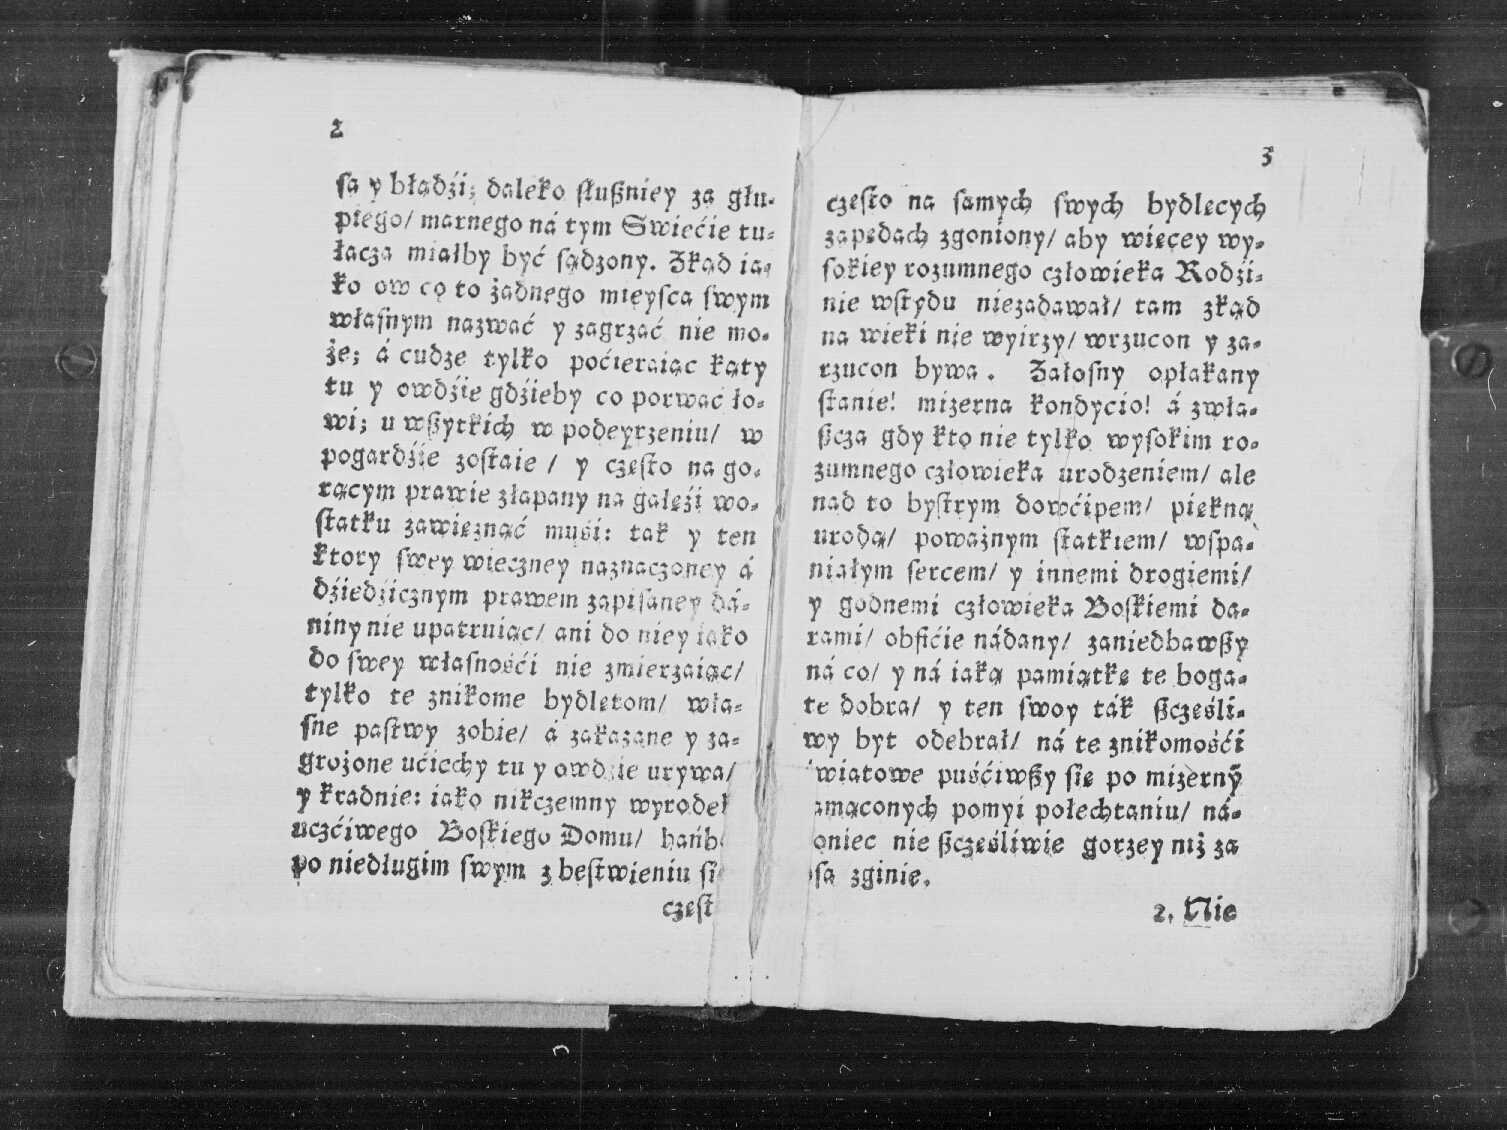 2
są y błądźi; daleko słußniey za głu-
piego/ marnego ná tym Swiećie tu-
łacza miałby być sądzony. Zkąd ia-
ko ow co to żadnego mieysca swym
własnym nazwać y zagrzać nie mo-
że; á cudze tylko poćieraiąc kąty
tu y owdźie gdźieby co porwać ło-
wi; u wßytkich w podeyrzeniu/ w
pogardźie zostaie / y często na go-
rącym prawie złapany na gałęźi wo-
statku zawięznąć muśi: tak y ten
ktory swey wieczney naznaczoney á
dźiedźicznym prawem zapisaney dá-
niny nie upatruiąc/ ani do niey iako
do swey własnośći nie zmierzaiąc/
tylko te znikome bydlętom/ wła-
sne pastwy zobie/ á zakazane y za-
grożone ućiechy tu y owdzie urywa/
y kradnie: iako nikczemny wyrodek
uczćiwego Boskiego Domu/ hańb
po niedługim swym z bestwieniu się
częst
3
często na samych swych bydlęcych
zapędach zgoniony/ aby więcey wy-
sokiey rozumnego człowieka Rodzi-
nie wstydu niezadawał/ tam zkąd
na wieki nie wyirzy/ wrzucon y za-
rzucon bywa. Załosny opłakany
stanie! mizerna kondycio! á zwła-
ßcza gdy kto nie tylko wysokim ro-
zumnego człowieka urodzeniem/ ale
nad to bystrym dowćipem/ piękną
urodą/ poważnym statkiem/ wspa-
niałym sercem/ y innemi drogiemi/
y godnemi człowieka Boskiemi da-
rami/ obfićie nádany/ zaniedbawßy
ná co/ y ná iaką pamiątkę te boga-
te dobra/ y ten swoy ták ßczęśli-
wy byt odebrał/ ná te znikomośći
wiatowe puśćiwßy się po mizernÿ
amąconych pomyi połechtaniu/ ná-
oniec nie ßczęśliwie gorzey niż za
sa zginie.
2. Nie